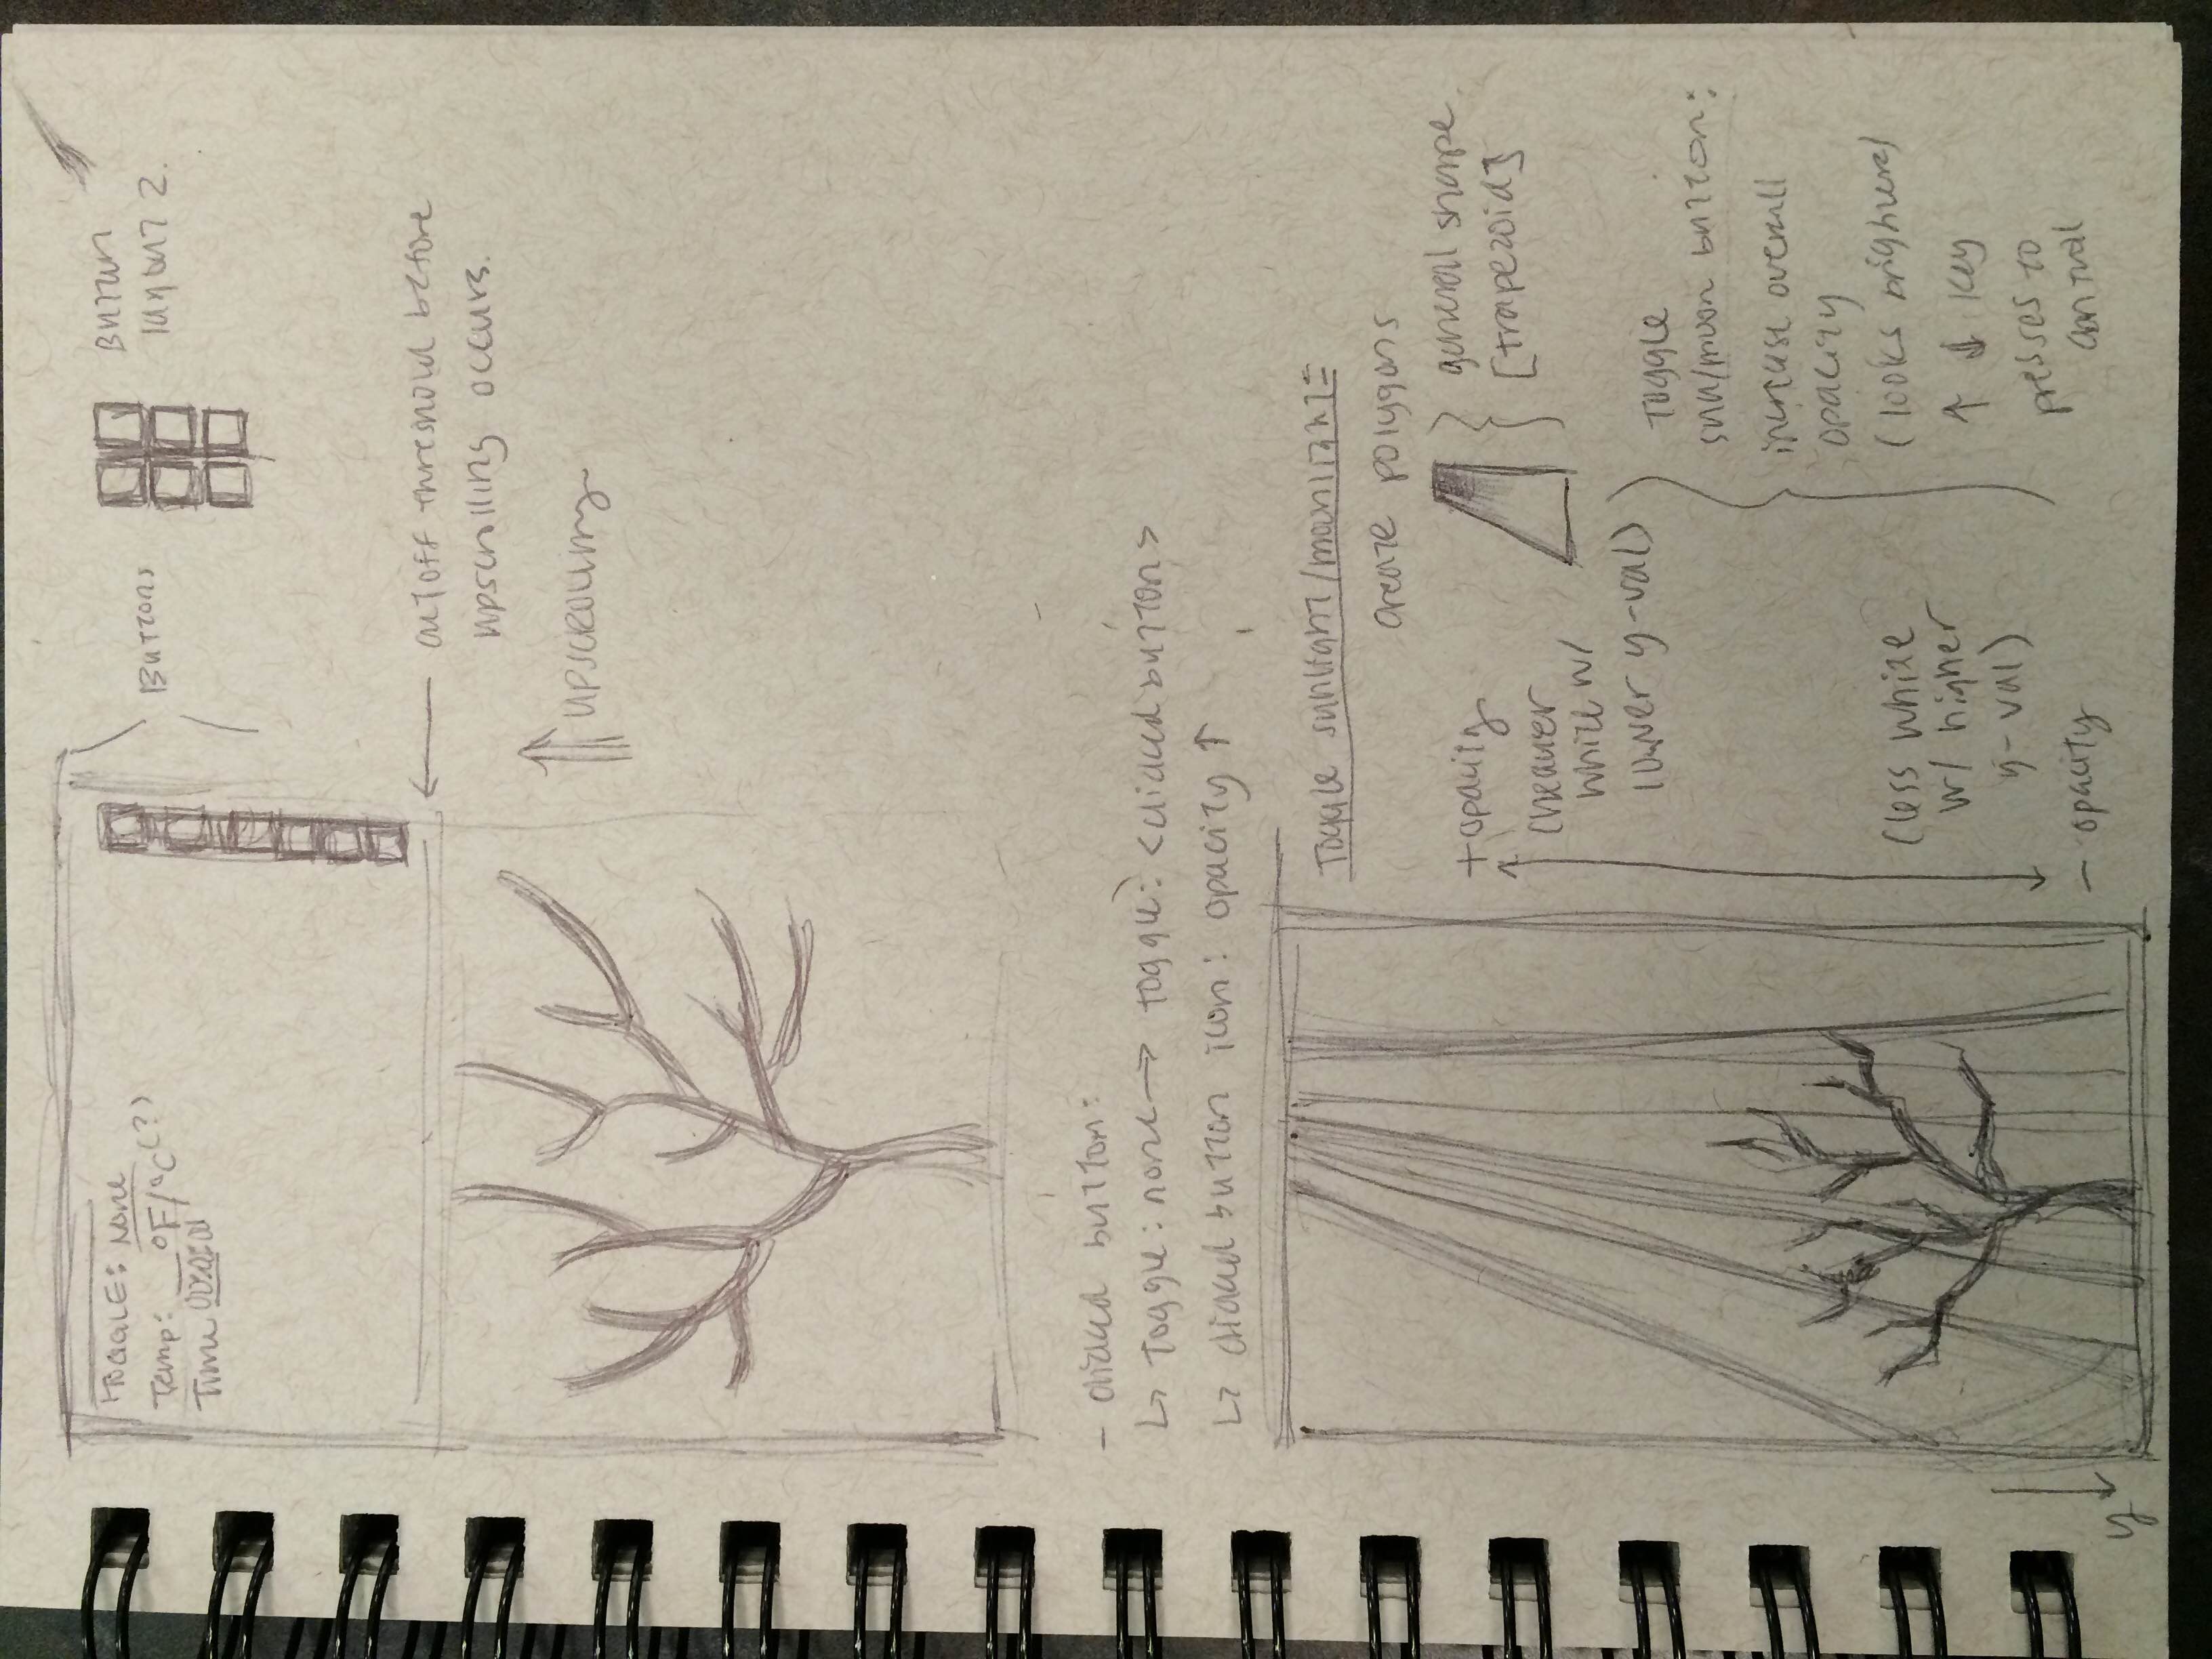 TOGGLE: None
Temp: __°F/°C(?)
Time 00:00:00
BUTTONS
BUTTON
layout 2.
cutoff threshold before
upscrolling occurs.
UPSCROLLING
- clicked button:
↳ Toggle: none → toggle: <clicked button>
↳ clicked button icon: opacity ↑
Toggle sunlight/moonlight:
create polygons
general shape
[trapezoid]
+ opacity
(heavier
white w/
lower y-val)
Toggle
sun/moon button:
increase overall
opacity
(looks brighter)
↑ ↓ key
presses to
control
(less white
w/ higher
y-val)
- opacity
y